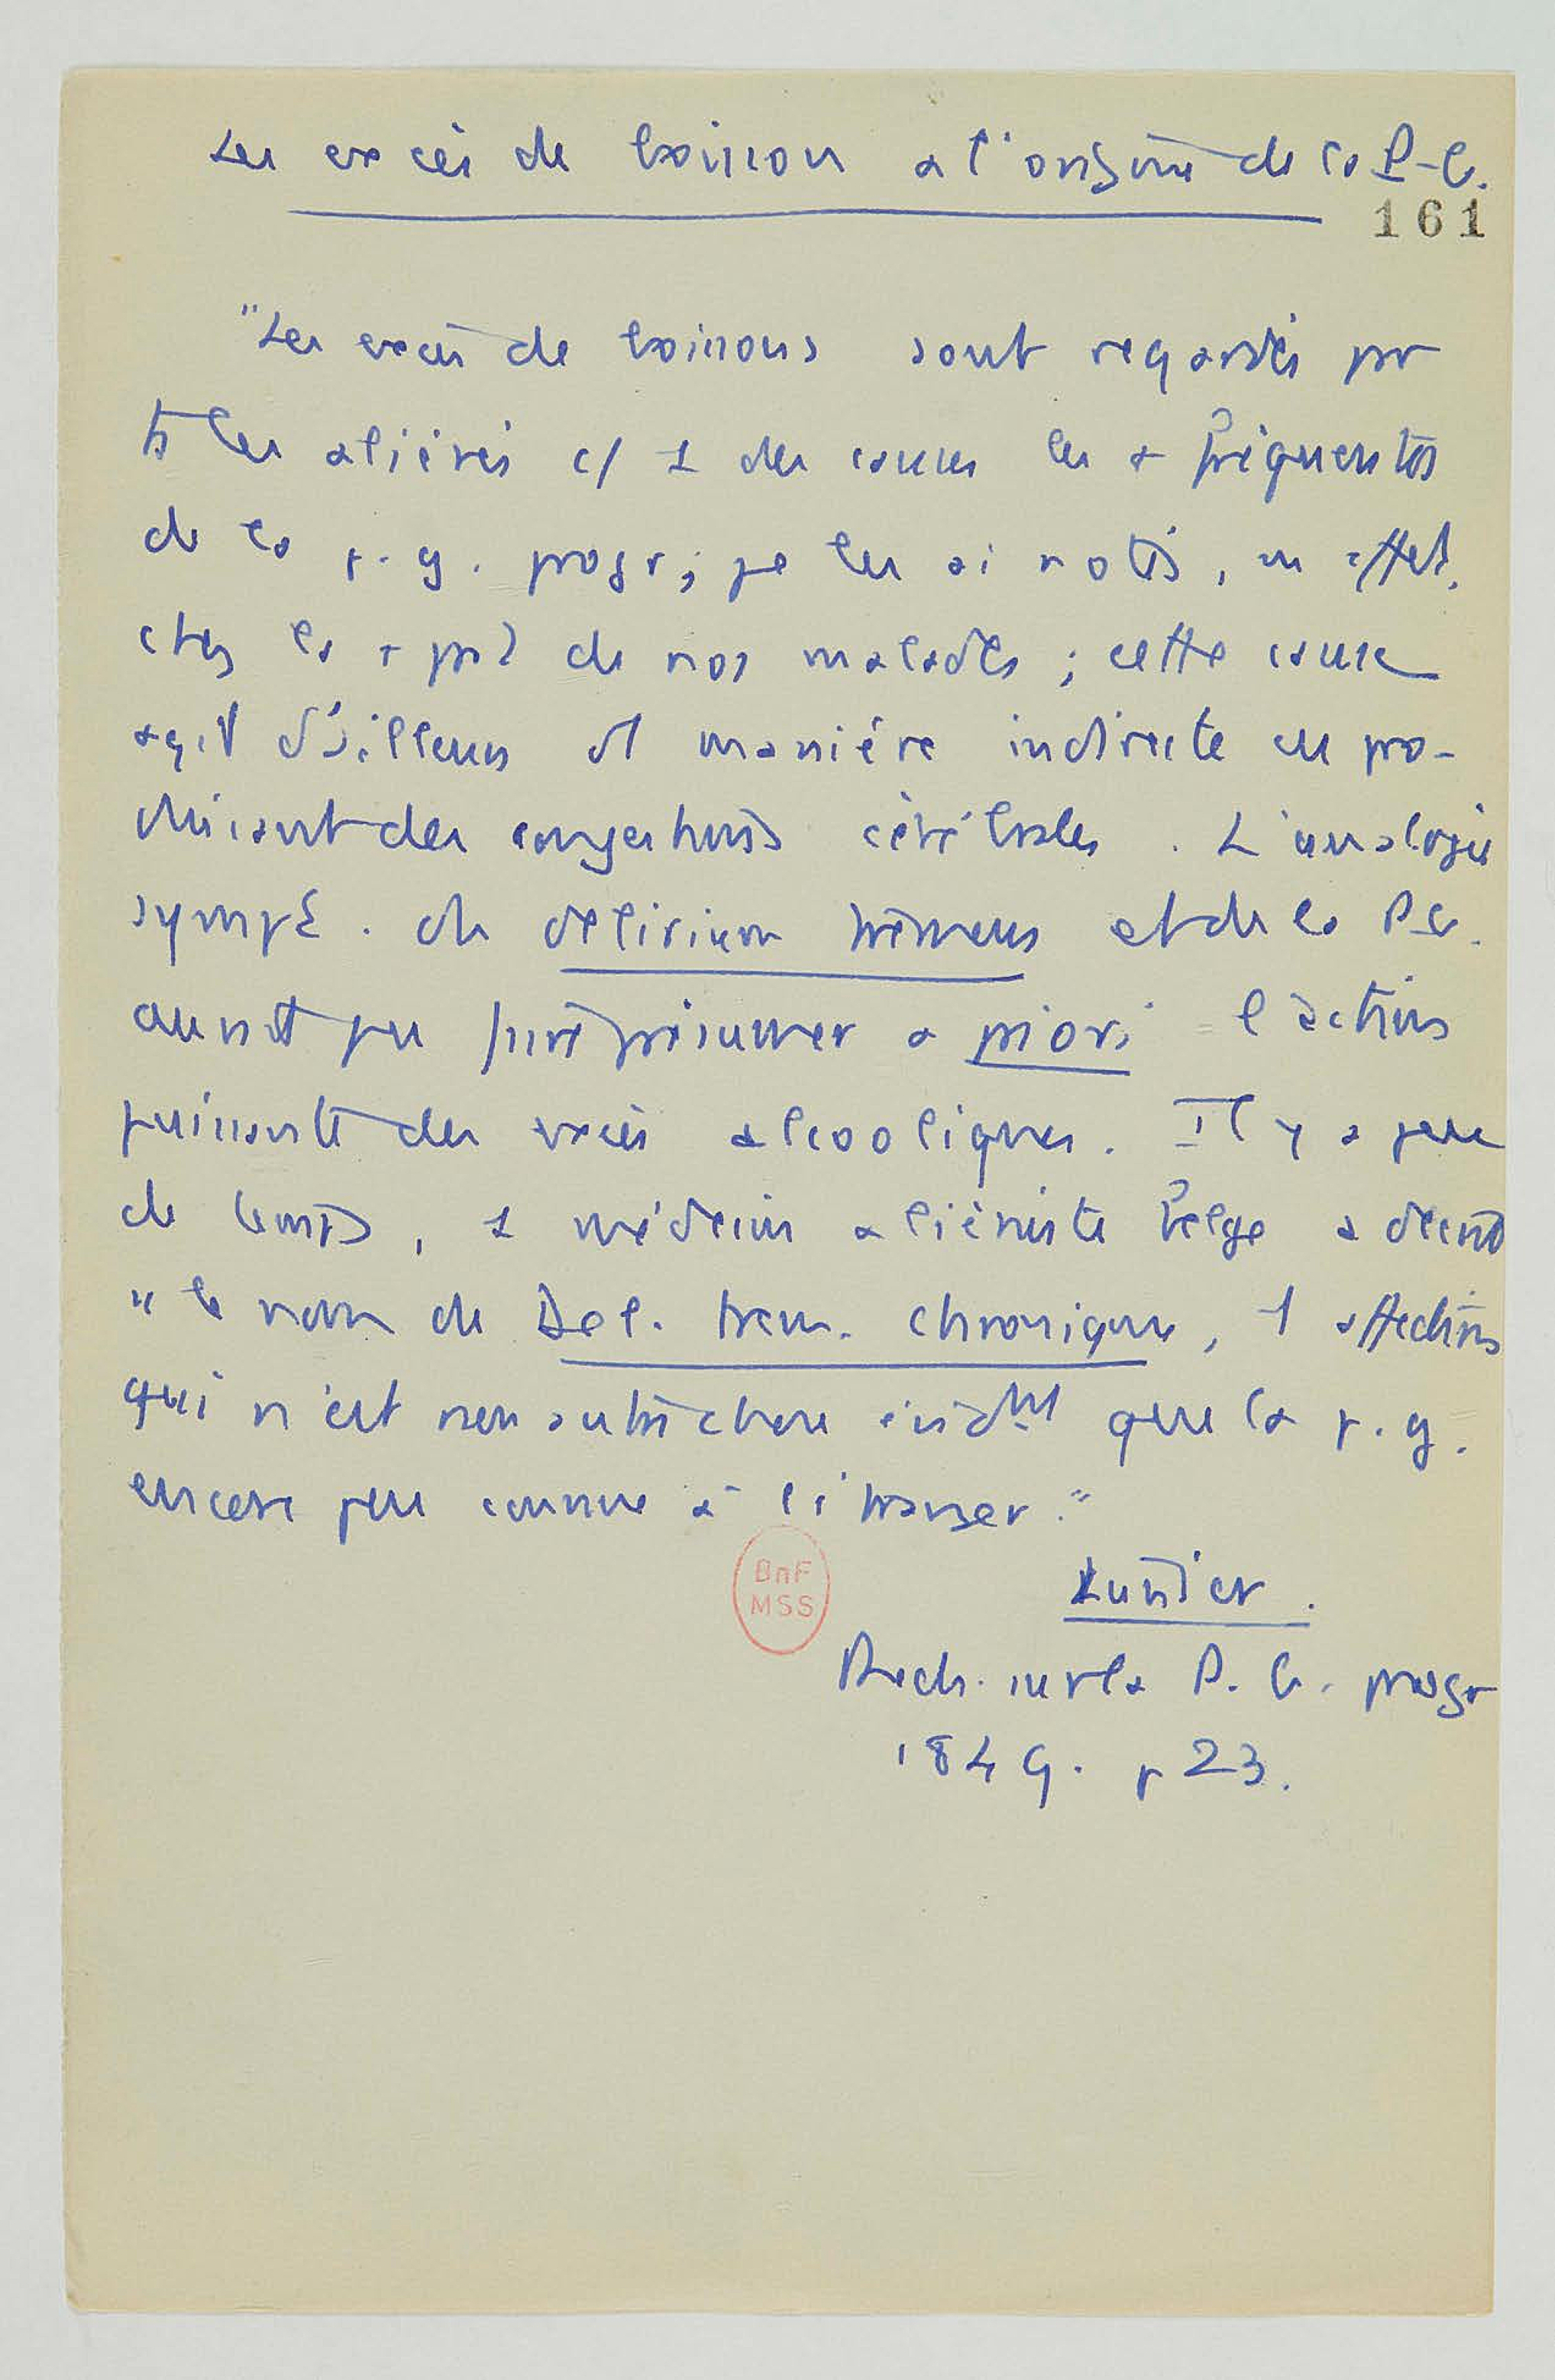 Les excès de boisson à l'origine de la P-G.
161
"Les excès de boissons sont regardés par
ts les aliénés c/ 1 des causes les + fréquentes
de la p. g. progr; je les ai notés, en effet,
chez la + part de nos malades ; cette cause
agit d'ailleurs d' manière indirecte en pro-
duisant des congestions cérébrales. L'analogie
sympt. du delirium tremens et de la PG.
aurait pu faire présumer a priori l'action
puissante des excès alcooliques. Il y a peu
de temps, 1 médecin aliéniste belge a décrit
" le nom de Del. trem. chronique, 1 affection
qui n'est rien autre chose évidmt que la p. g.
encore peu connue à l'étranger."
Lunier.
Rech. sur la P. G. progr
1849. p 23.
BnF
MSS